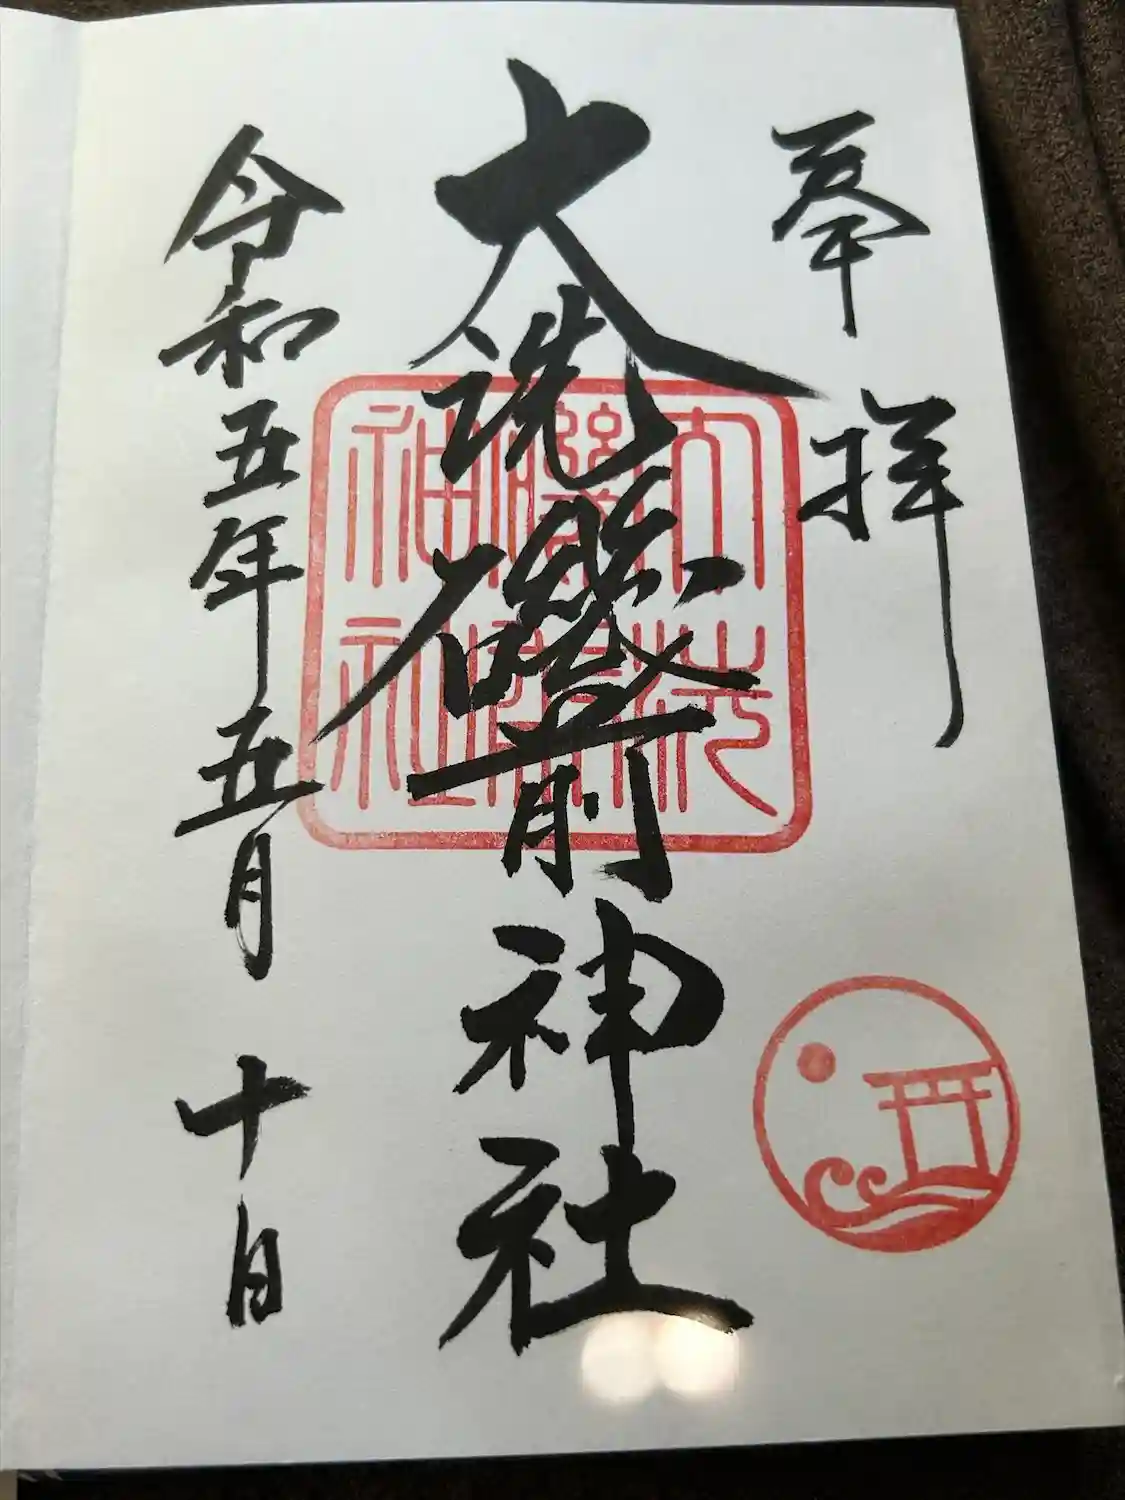 奉拝
大洗磯前神社
令和五年五月十日
大洗
磯前
神社